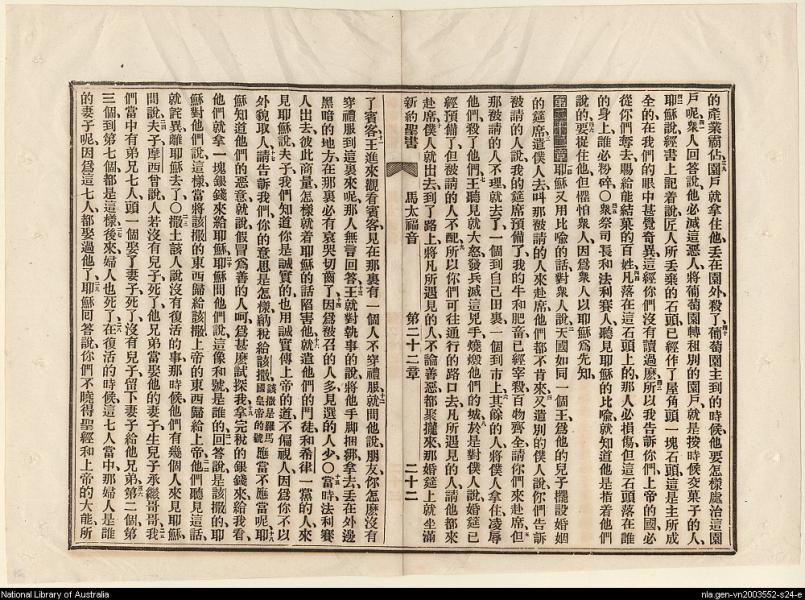 的產業霸佔園戶就拿住他丟在園外殺了葡萄園主到的時候他要怎樣處治這園
戶呢衆人回答說他必滅這惡人將葡萄園轉租別的園戶就是按時候交菓子的人
耶穌說經書上記着說匠人所丟棄的石頭已經作了屋角頭一塊石頭這是主所成
全的在我們的眼中甚覺奇異這經你們沒有讀過麽所以我告訴你們上帝的國必
從你們奪去賜給能結菓的百姓凡落在這石頭上的那人必損傷但這石頭落在誰
的身上誰必粉碎〇衆祭司長和法利賽人聽見耶穌的比喻就知道他是指着他們
說的要捉住他但懼怕衆人因爲衆人以耶穌爲先知
第二十二章耶穌又用比喻的話對衆人說天國如同一個王爲他的兒子擺設婚姻
的筵席遣僕人去叫那被請的人來赴席他們都不肯來又遣別的僕人說你們告訴
被請的人說我的筵席預備了我的牛和肥畜已經宰殺百物齊全請你們來赴席但
那被請的人不理就去了一個到自己田裏一個到市上其餘的人將僕人拿住凌辱
他們殺了他們王聽見就大怒發兵滅這兇手燒燬他們的城於是對僕人說婚筵已
經預備了但被請的人不配所以你們可往通行的路口去凡所遇見的人請他都來
赴席僕人就出去到了路上將凡所遇見的人不論善惡都聚攏來那婚筵上就坐滿
新約聖書 馬太福音 第二十二章 二十二
了賓客王進來觀看賓客見在那裏有一個人不穿禮服就問他說朋友你怎麽沒有
穿禮服到這裏來呢那人無言回答王就對執事的說將他手脚捆綁拿去丟在外邊
黑暗的地方在那裏必有哀哭切齒了因爲被召的人多見選的人少〇當時法利賽
人出去彼此商量怎樣就着耶穌的話陷害他就遣他們的門徒和希律一黨的人來
見耶穌說夫子我們知道你是誠實的也用誠實傳上帝的道不偏視人因爲你不以
外貌取人請告訴我們你的意思是怎樣納稅給該撒該撒是羅馬國皇帝的號應當不應當呢耶
穌知道他們的惡意就說假冒爲善的人呵爲甚麽試探我拿完稅的銀錢來給我看
他們就拿一塊銀錢來給耶穌耶穌問他們說這像和號是誰的回答說是該撒的耶
穌對他們說這樣當將該撒的東西歸給該撒上帝的東西歸給上帝他們聽見這話
就詫異離耶穌去了〇撒土該人說沒有復活的事那時候他們有幾個人來見耶穌
問說夫子摩西曾說人若沒有兒子死了他兄弟當娶他的妻子生兒子承繼哥哥我
們當中有弟兄七人頭一個娶了妻子死了沒有兒子留下妻子給他兄弟第二個第
三個到第七個都是這樣後來婦人也死了在復活的時候這七人當中那婦人是誰
的妻子呢因爲這七人都娶過他了耶穌回答說你們不曉得聖經和上帝的大能所
National Library of Australia
nla.gen-vn2003552-s24-e